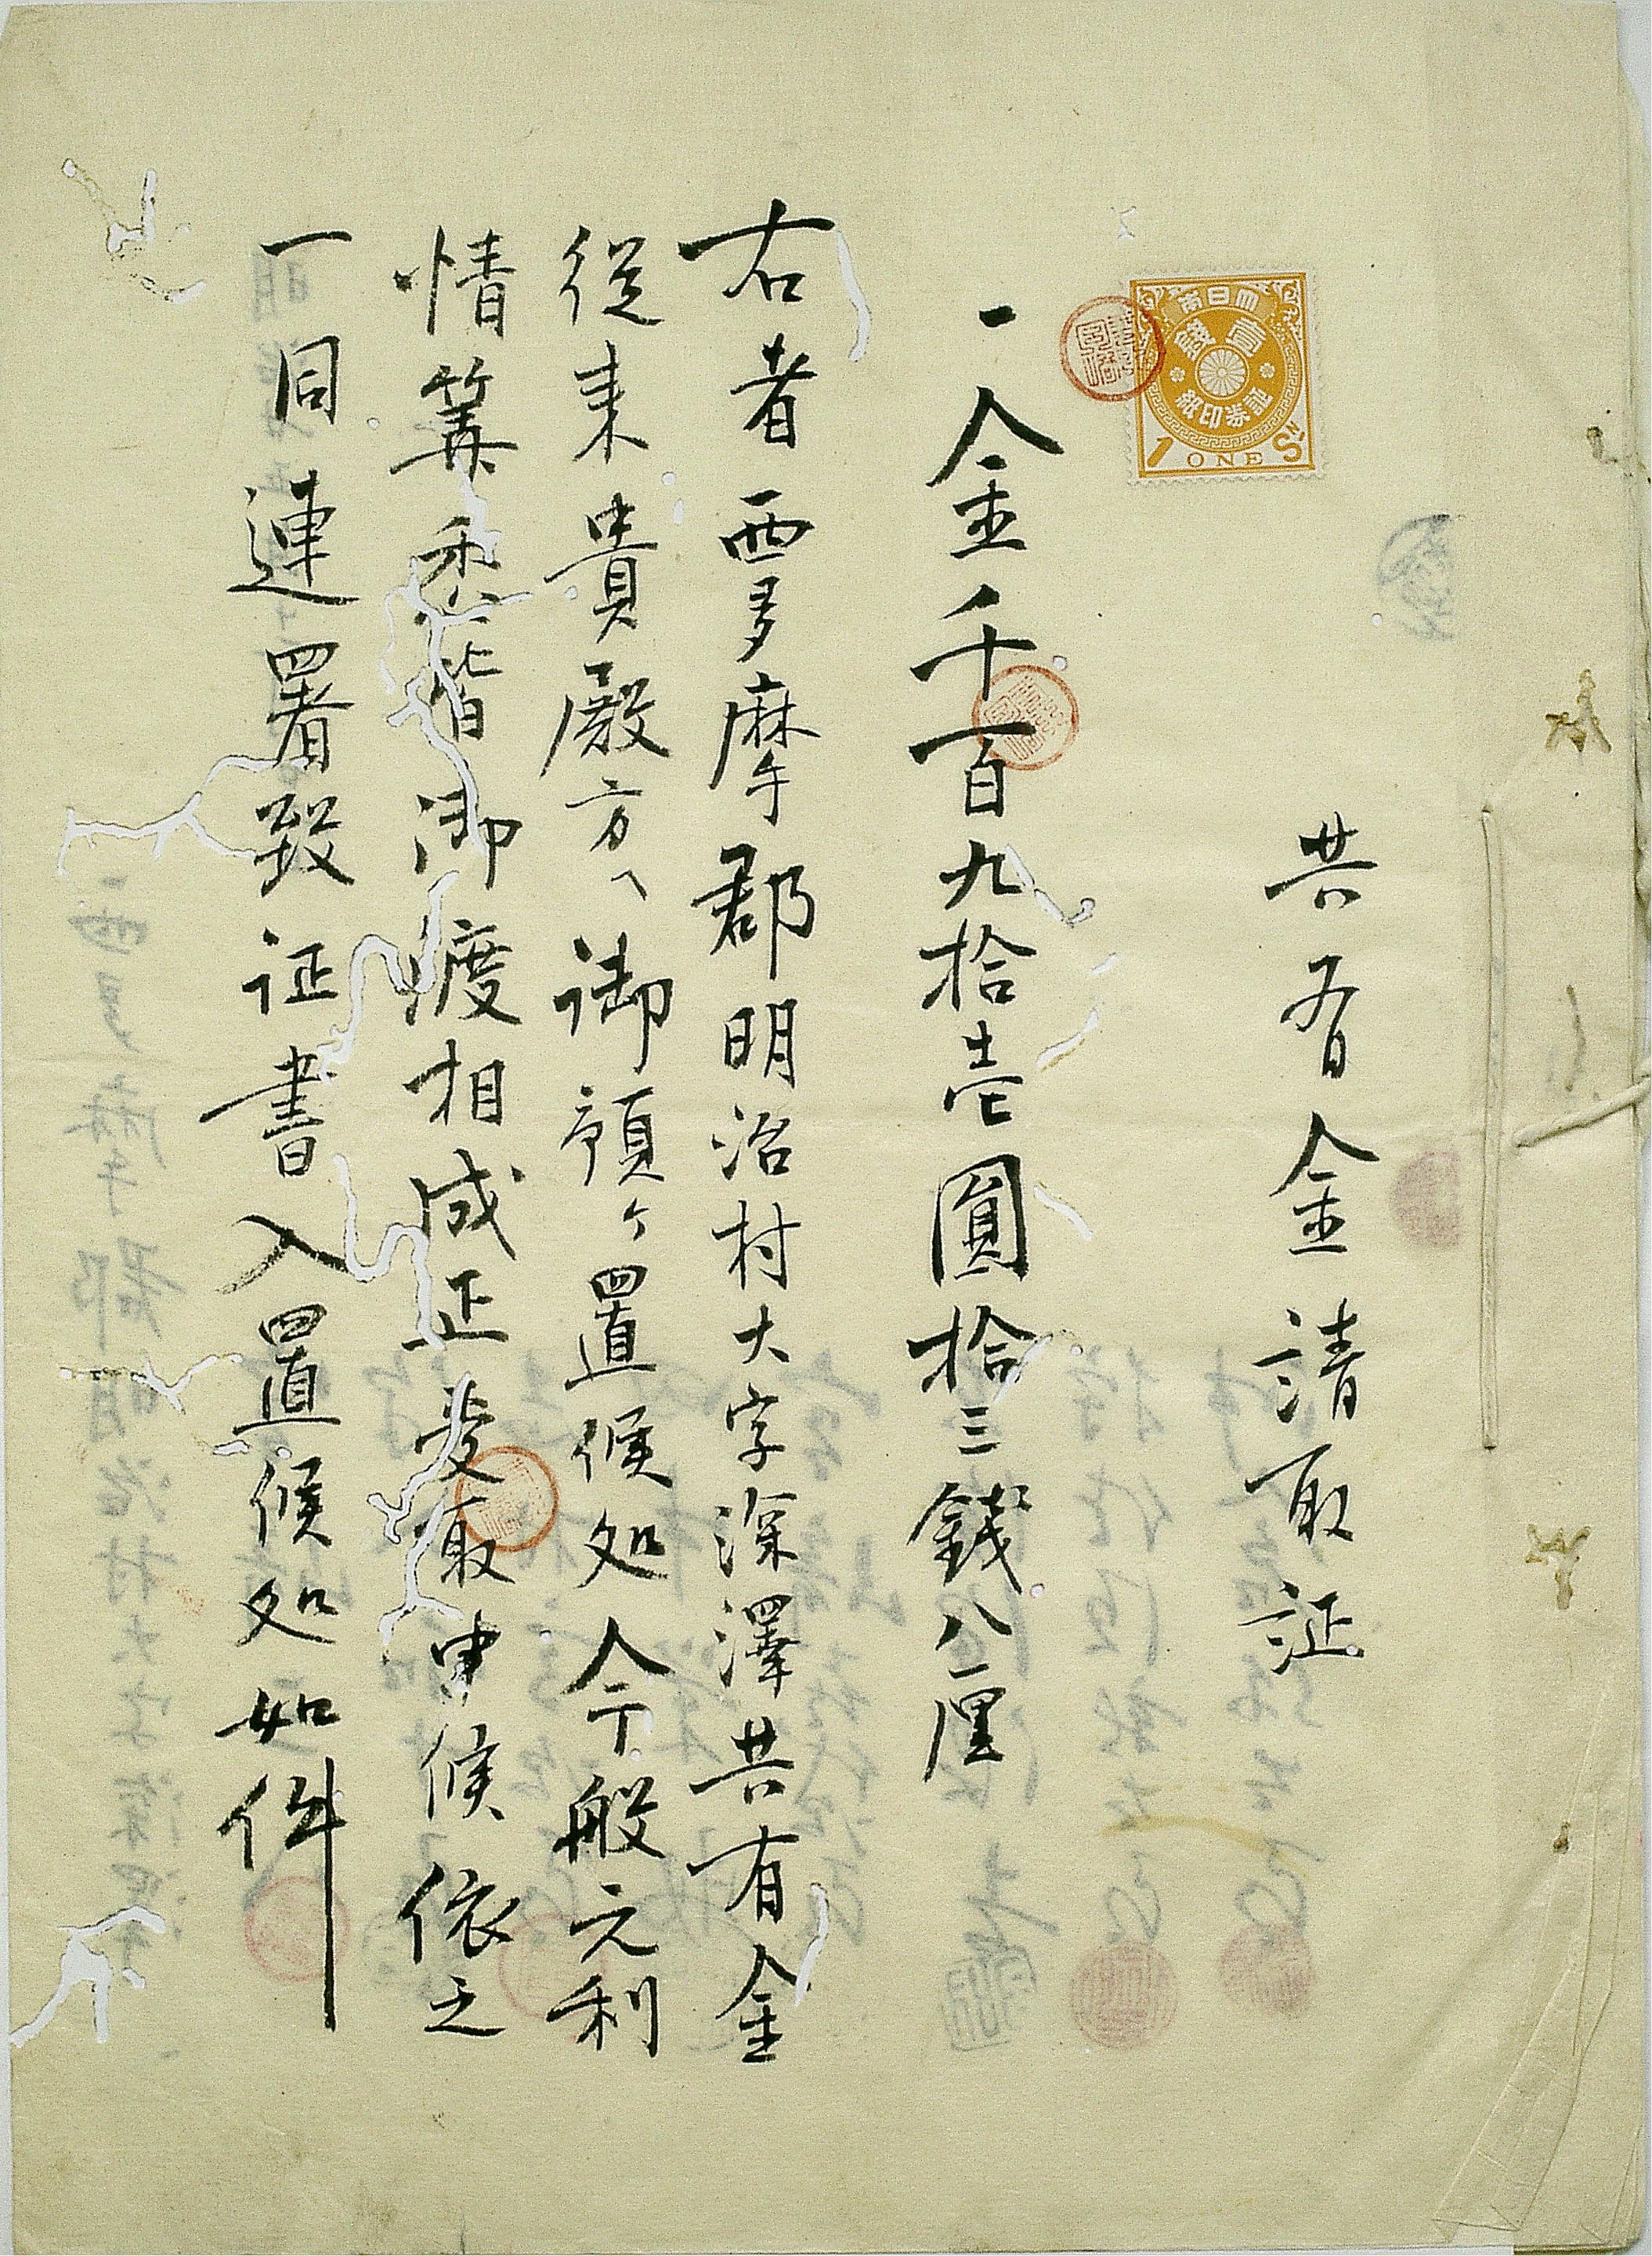 共有金請取証
大日本帝國
壹錢
証券印紙
1 ONE Sᴺ
一金千百九拾壱圓拾三錢八厘
右者西多摩郡明治村大字深澤共有金
従来貴殿方へ御預ケ置候処今般元利
精算悉皆御渡相成正受取申候依之
一同連署致証書入置候処如件